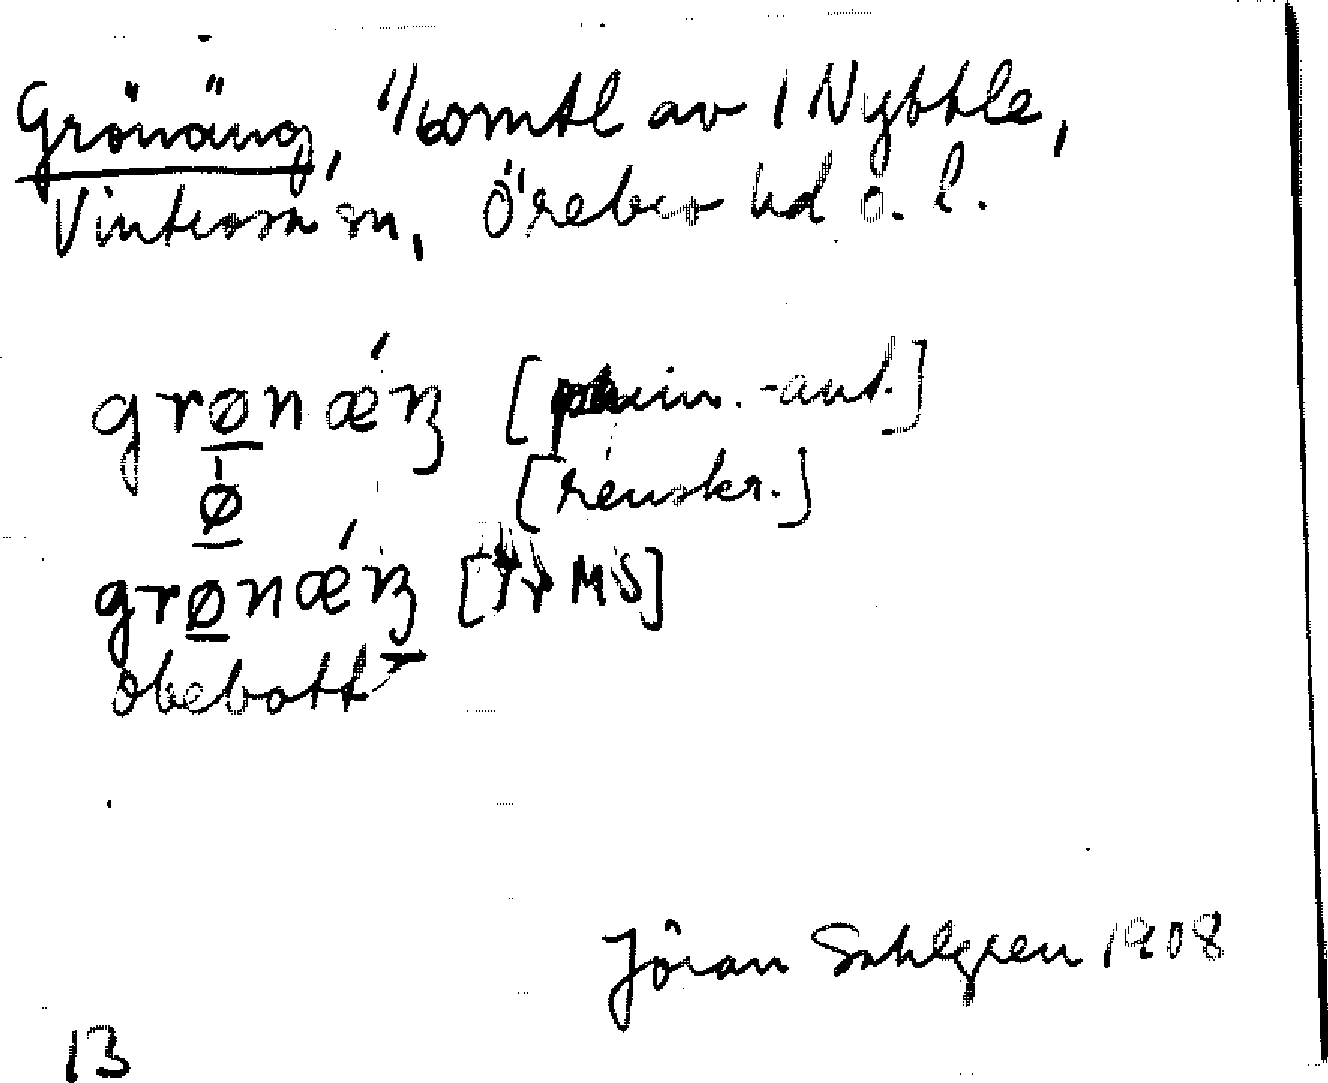 Grönäng, 1/60 mtl av 1 Nybble,
Vintrosa sn, Örebro hd ö. l.
grø̲næ´ŋ [prim.-ant.]
ø̲ [renskr.]
grø̲næ´ŋ [MS]
obebott
Jöran Sahlgren 1908
13